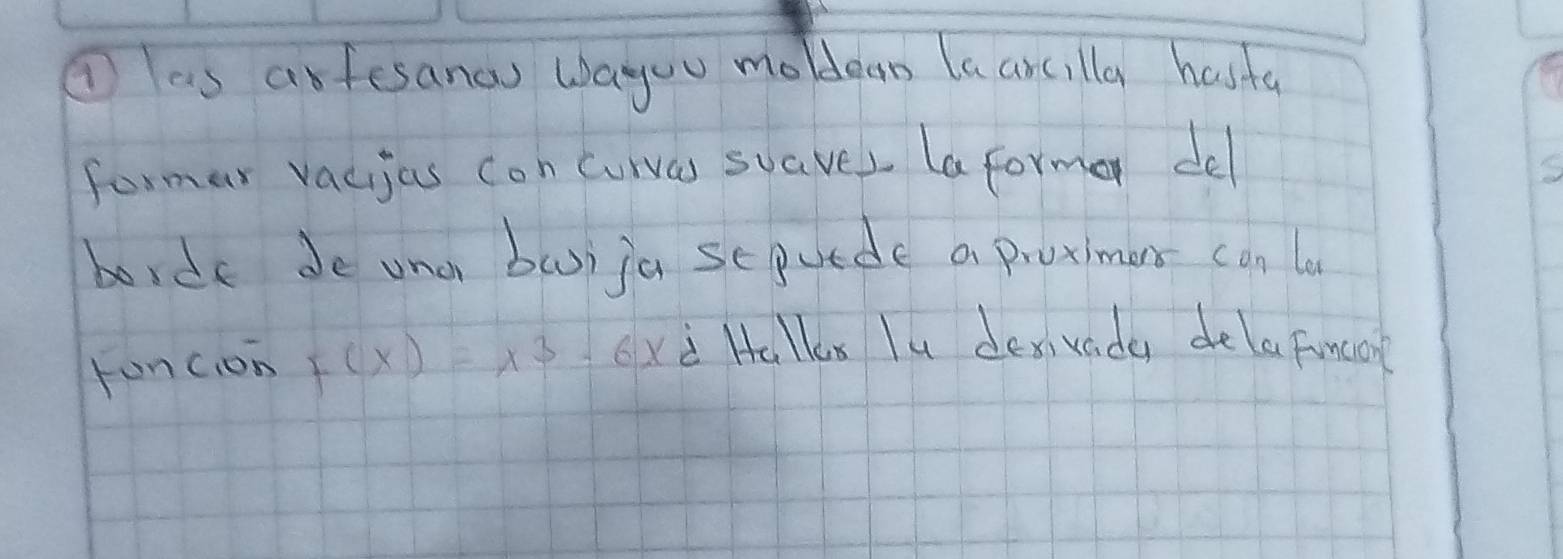 ① las artesanas wayuu moldean la arcilla hasta
formar vacijas con curvas suaves. la forma del
borde de una basija se puede aproximar con la
función f(x) = x3 - 6x ¿ Hallar la derivada de la función?